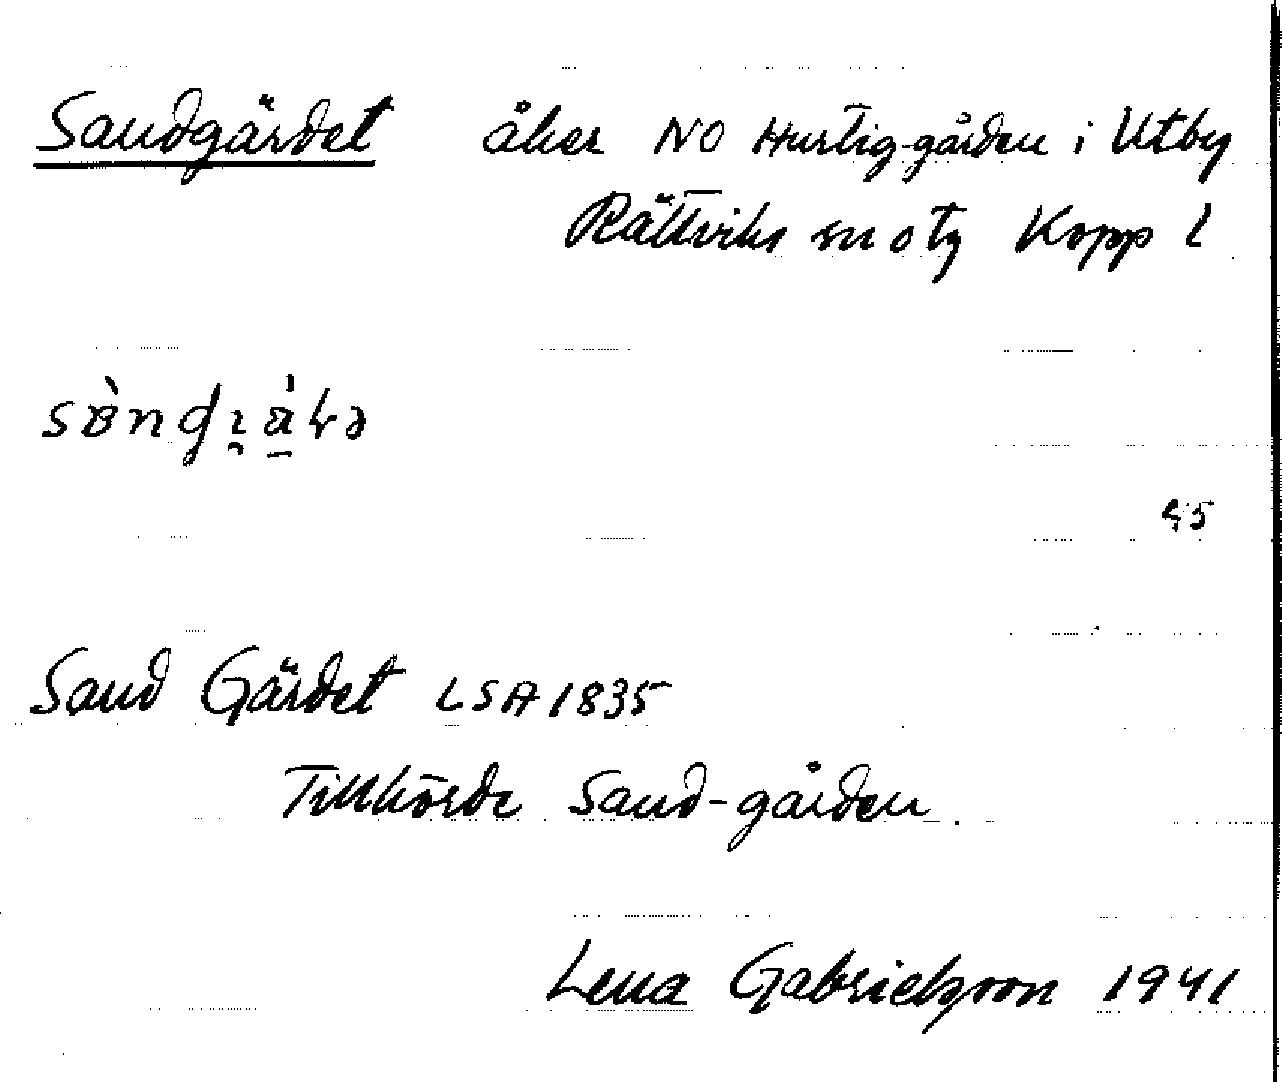 Sandgärdet åker NO Hurtig-gården i Utby
Rättviks sn o tg Kopp l
45
Sand Gärdet LSA 1835
Tillhörde Sand-gården.
Lena Gabrielsson 1941